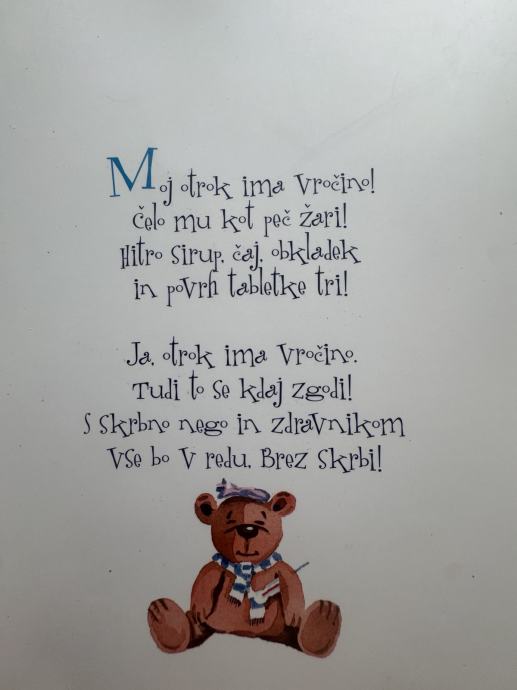 Moj otrok ima vročino!
Čelo mu kot peč žari!
Hitro sirup, čaj, obkladek
in povrh tabletke tri!
Ja, otrok ima vročino.
Tudi to se kdaj zgodi!
S skrbno nego in zdravnikom
vse bo v redu. Brez skrbi!